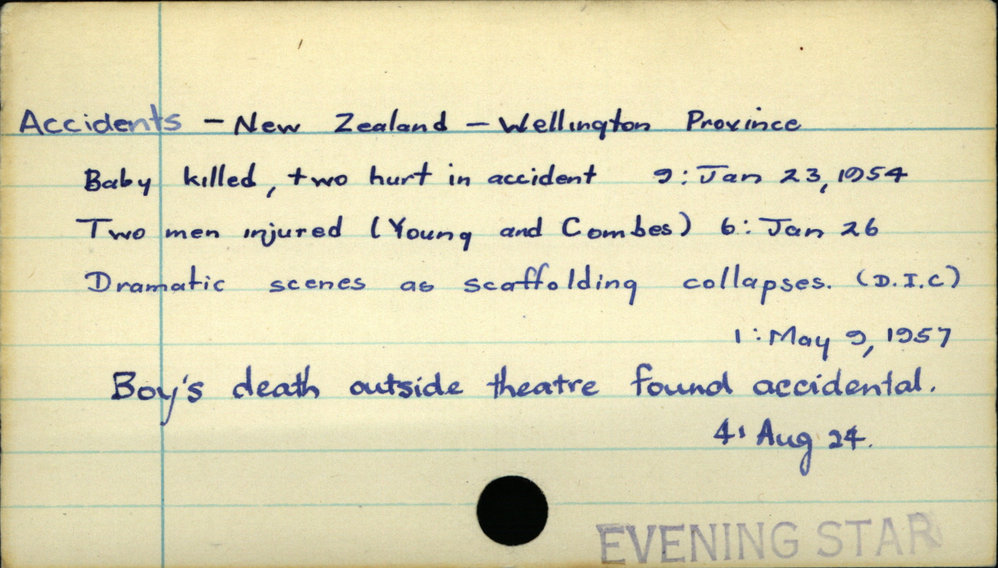 Accidents - New Zealand - Wellington Province
Baby killed, two hurt in accident 9: Jan 23, 1954
Two men injured (Young and Combes) 6: Jan 26
Dramatic scenes as scaffolding collapses. (D.I.C)
1: May 9, 1957
Boy's death outside theatre found accidental.
4: Aug 24.
EVENING STAR